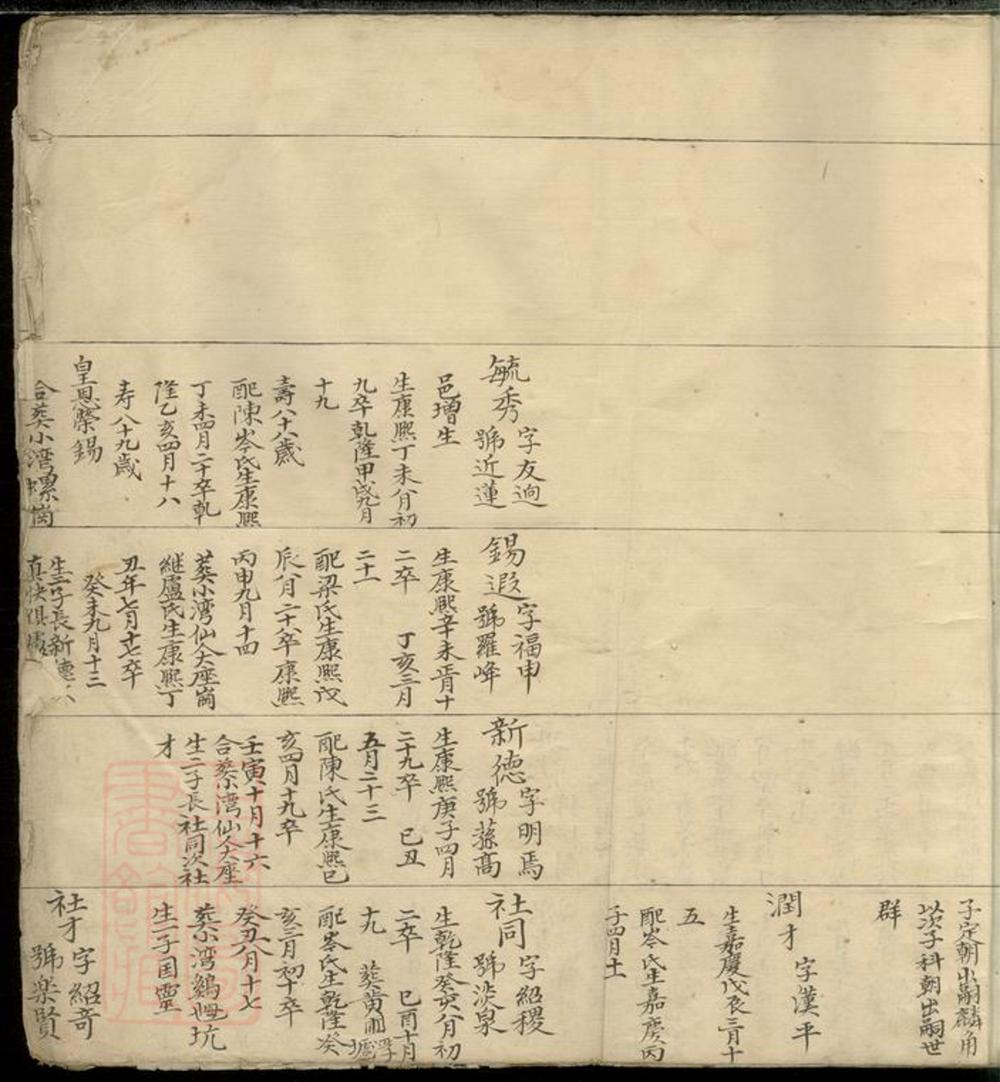 毓秀
字友逈
號近蓮
邑增生
生康熙丁未八月初
九卒乾隆甲戌九月
十九
壽八十八歲
配陳岑氏生康熙
丁未四月二十卒乾
隆乙亥四月十八
寿八十九歲
皇恩榮錫
合葬小湾螺崗
錫遐
字福申
號羅峰
生康熙辛未正月十
二卒 丁亥三月
二十一
配梁氏生康熙戊
辰八月二十八卒康熙
丙申九月十四
葬小湾仙人大座崗
継盧氏生康熙丁
丑年七月十七卒
癸未九月十三
生二子長新德次
新德
字明馬
號蓀高
生康熙庚子四月
二十九卒 己丑
五月二十三
配陳氏生康熙己
亥四月十九卒
壬寅十月十六
合葬小湾仙人大座
生二子長社同次社
才
子定朝出嗣麟角
茨子科朝出嗣世
群
潤才
字漢平
生嘉慶戊辰三月十
五
配岑氏生嘉慶丙
子四月十
社同
字紹稷
號淡泉
生乾隆癸亥八月初
二卒 己酉十月
十九
配岑氏生乾隆癸
亥三月初十卒
癸丑八月十七
葬小湾鷄乸坑
生一子国霊
社才
字紹奇
號楽賢